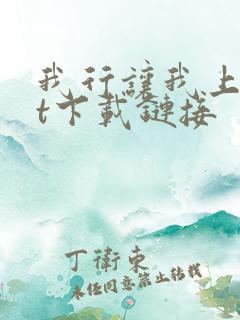 我行讓我上
t下載鏈接
丁衛東
未经同意禁止转载